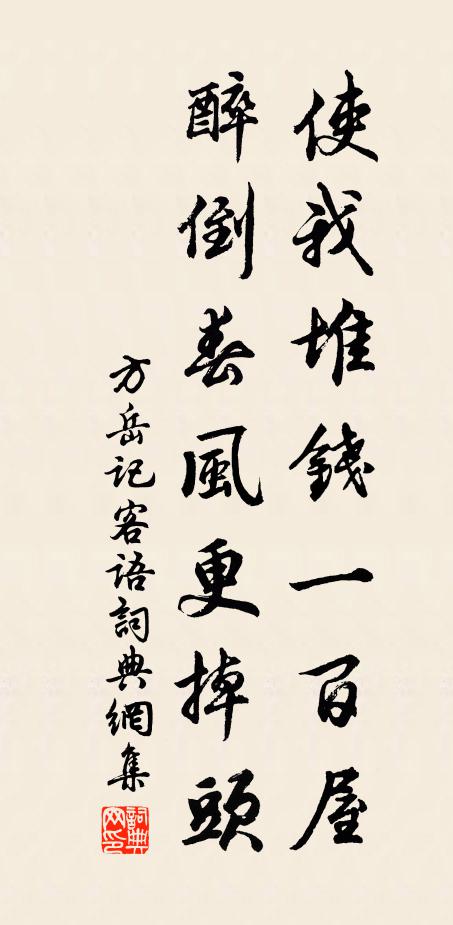 使我堆錢一百屋
醉倒春風更掉頭
方岳記客語詞典網集
詞典网印